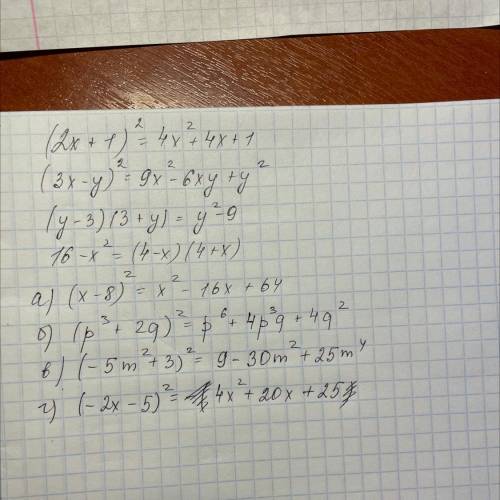 (2x + 1)² = 4x² + 4x + 1
(3x - y)² = 9x² - 6xy + y²
(y - 3)(3 + y) = y² - 9
16 - x² = (4 - x)(4 + x)
а) (x - 8)² = x² - 16x + 64
б) (p³ + 2q)² = p⁶ + 4p³q + 4q²
в) (-5m² + 3)² = 9 - 30m² + 25m⁴
г) (-2x - 5)² = 4x² + 20x + 25